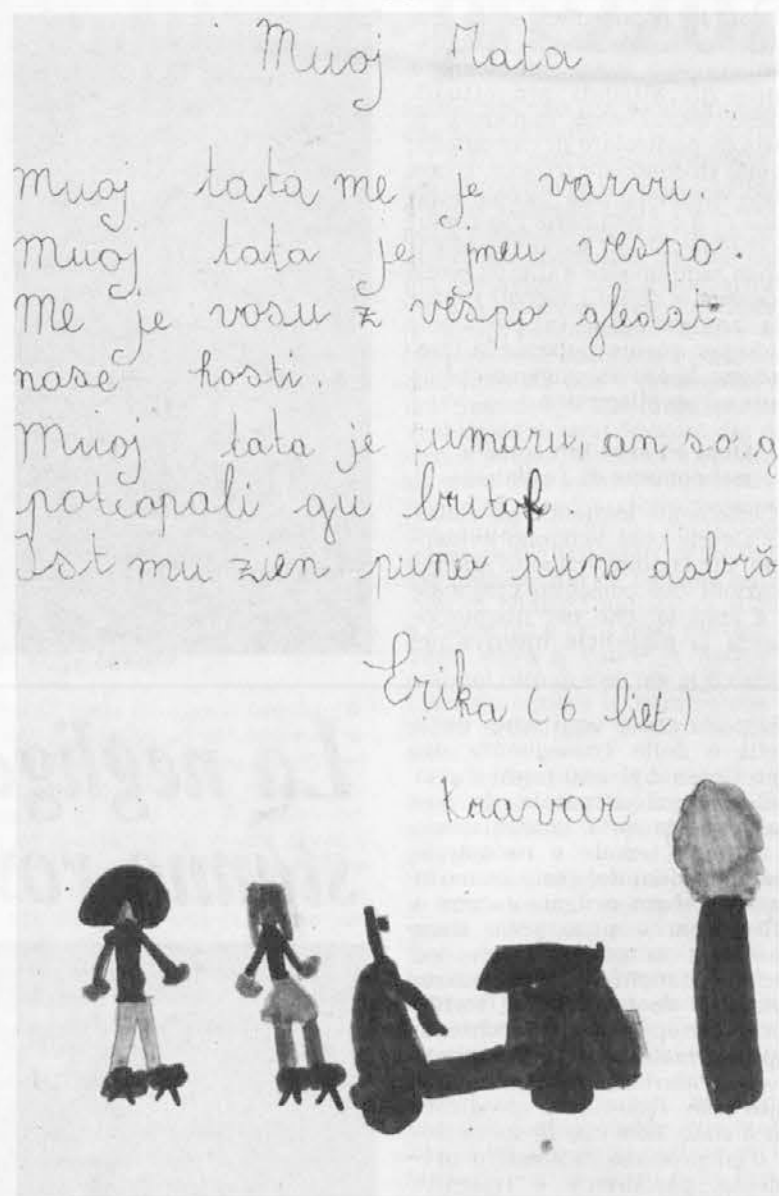 Muoj Tata
Muoj tata me je varvu.
Muoj tata je jmeu vespo.
Me je vosu z vespo gledat
naše hosti.
Muoj tata je umaru, an so g
potcapali gu britof.
Ist mu zien puno puno dobrà
Erika (6 liet)
Kravar